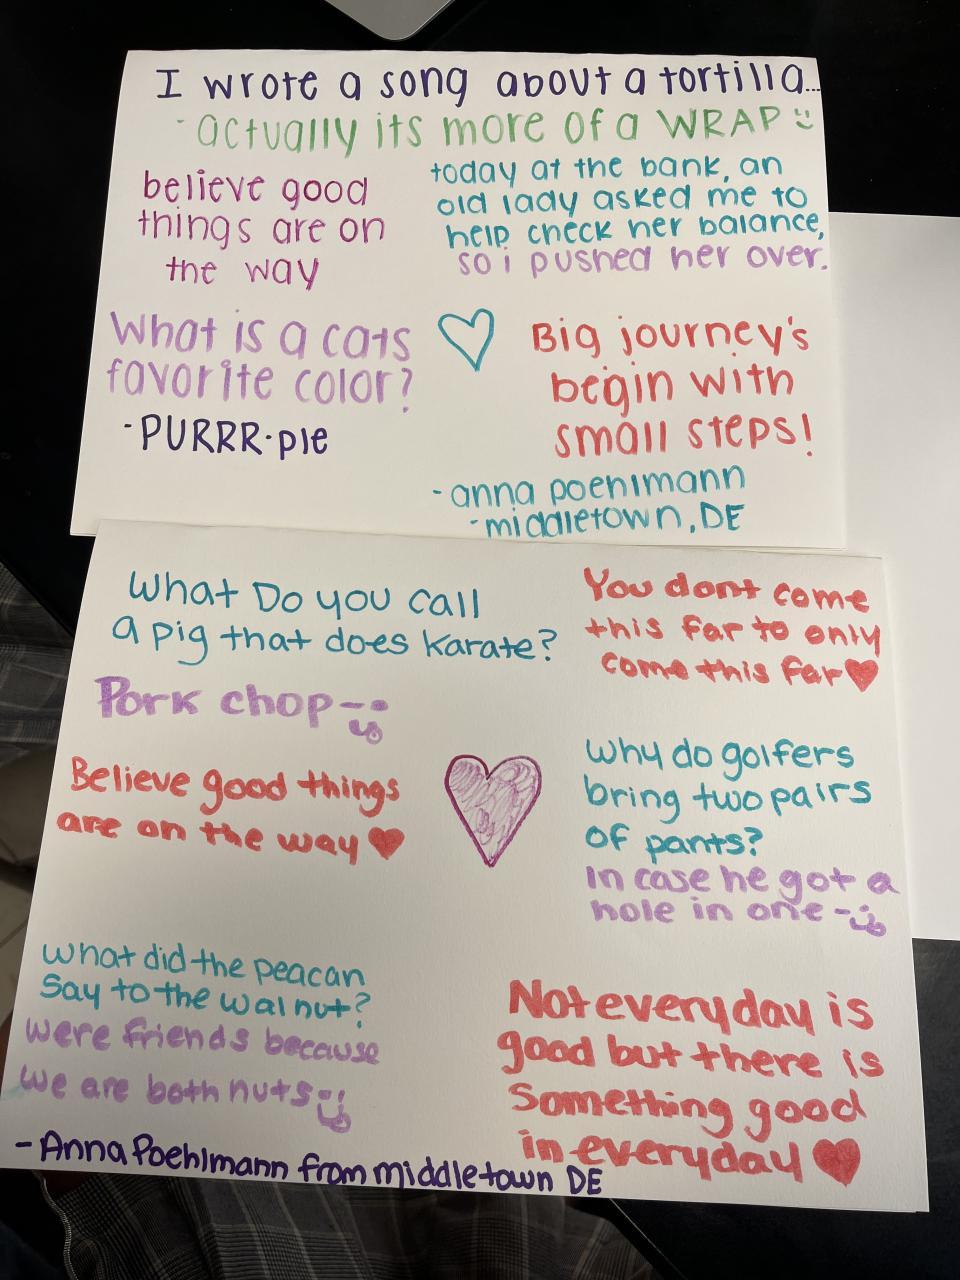 I wrote a song about a tortilla...
- actually its more of a WRAP :)
believe good
things are on
the way
today at the bank, an
old lady asked me to
help check her balance,
so i pushed her over.
What is a cats
favorite color?
- PURRR·ple
Big journey's
begin with
small steps!
- anna poehlmann
- middletown, DE
What Do you call
a pig that does karate?
Pork chop
You dont come
this far to only
come this far
Believe good things
are on the way
Why do golfers
bring two pairs
of pants?
In case he got a
hole in one
What did the peacan
Say to the walnut?
were friends because
we are both nuts
Not everyday is
good but there is
Something good
in everyday
- Anna Poehlmann from middletown DE